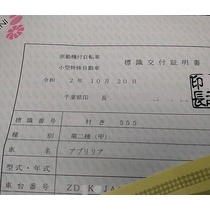 原動機付自転車
小型特殊自動車
標識交付証明書
令和 2年10月20日
千葉県印 長
標識番号 村き 555
種別 第二種(甲)
車名 アプリリア
型式・年式
車台番号 ZD K JA